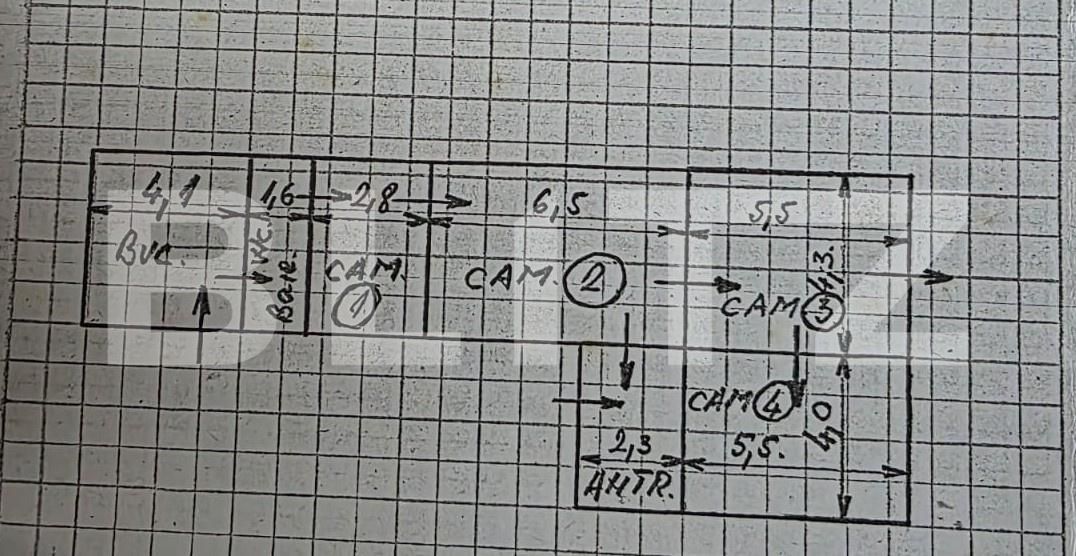 4,1
1,6
2,8
6,5
5,5
Buc.
WC.
Baie.
CAM.
1
CAM.
2
CAM
3
4,3.
CAM
4
4,0
2,3
5,5.
AHTR.
BLITZ